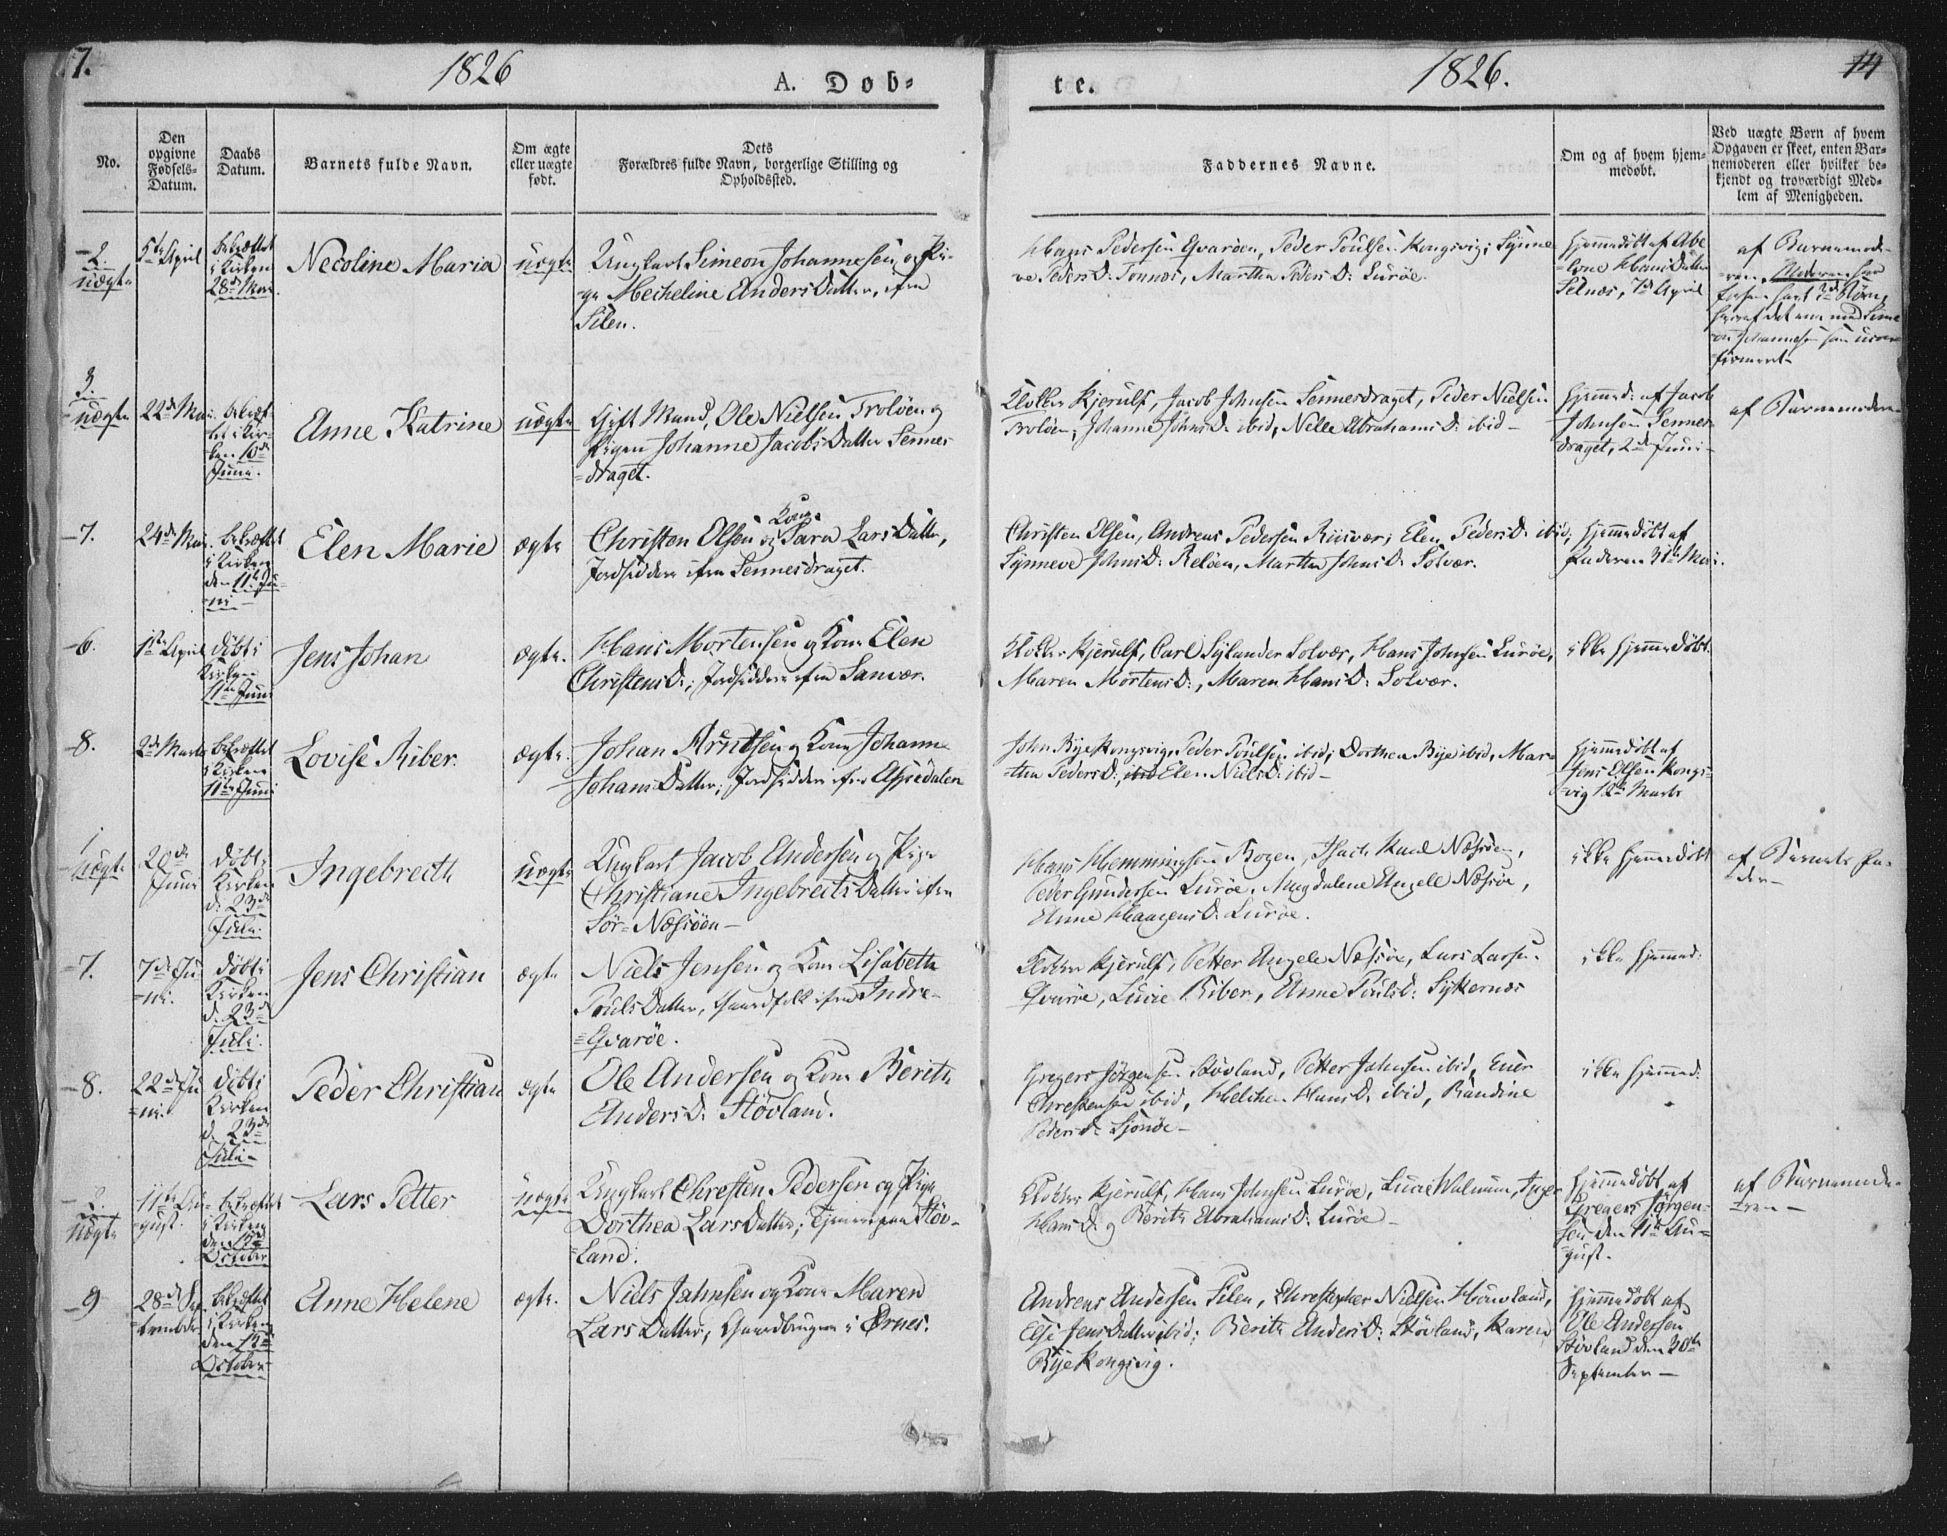 7.
1826
A. Døb-
te.
1826.
14
No.
Den
opgivne
Fødsels-
Datum.
Daabs
Datum.
Barnets fulde Navn.
Om ægte
eller uægte
født.
Dets
Forældres fulde Navn, borgerlige Stilling og
Opholdssted.
Faddernes Navne.
Om og af hvem hjem-
medøbt.
Ved uægte Børn af hvem
Opgaven er skeet, enten Bar-
nemoderen eller hvilket be-
kjendt og troværdigt Med-
lem af Menigheden.
2.
uægte
5te April
bekræftet
i Kirken
28de Mai
Necoline Maria
uægte
Ungkarl Simeon Johannesen og Pi-
ge Micheline AndersDatter, ifra
Silen.
Hans Pedersen Qvarøen, Peder Poulsen Kongsvig; Synne-
ve PedersD: Tonnes, Martha PedersD: Lurøe.
Hjemmedøbt af Abe-
lone HansDatter
Selnæs, 7de April
af Barnemode-
ren, Moderen har
3.
uægte
22de Mai
bekræf-
tet i Kir-
ken 10de
Juni.
Anne Katrine
uægte
Gift Mand, Ole Nielsen Troløen og
Pigen Johanne JacobsDatter Sennes-
draget.
Klokker Kjerulf, Jacob Johnsen Sennesdraget, Peder Nielsen
Troløen, Johanne JohnsD: ibid, Nille AbrahamsD: ibid-
Hjemmed: af Jacob
Johnsen Sennes-
draget, 2de Juni-
af Barnemoderen
7.
24de Mai
bekræftet
i Kirken
den 11te Ju-
ni-
Elen Marie
ægte
Christen Olsen og Kone Sara LarsDatter,
Jordsiddere ifra Sennesdraget.
Christen Olsen, Andreas Pedersen Riisvær; Elen PedersD: ibid;
Synneve JohnsD: Reløen, Martha JohnsD: Solvær.
Hjemmedøbt af
Faderen 31te Mai.
6.
1ste April
døbt i
Kirken
11te Juni
Jens Johan
ægte.
Hans Mortensen og Kone Elen
ChristensD:, Jordsiddere ifra Sanvær.
Klokker Kjerulf, Carl Sylander Solvær, Hans Johnsen Lurøe,
Maren MortensD:, Maren HansD: Solvær.
ikke hjemmedøbt.
8.
2de Marts
bekræftet
i Kirken
11te Juni
Lovise Riber.
ægte.
Johan Arntsen og Kone Johanne
JohansDatter; Jordsiddere ifra Aspedalen
John Bye Kongsvig, Peder Poulsen ibid; Dorthea Bye ibid, Mar-
tha PedersD: ibid Elen NielsD: ibid-
Hjemmedøbt af
Jens Olsen Kongs-
vig 12te Marts
1
uægte
20de
Juni
døbt i
Kirken
d: 23de
Julii.
Ingebrecth
uægte
Ungkarl Jacob Andersen og Pige
Christiane IngebrectsDatter ifra
Sør-Næsøen-
Hans Hemmingsen Bogen, Isach Næsøen,
Peder Gundersen Lurøe, Magdalene Angele Næsøe,
Anne HaagensD: Lurøe.
ikke hjemmedøbt
af Barnets Fa-
der-
7.
7de Ju-
ni.
døbt i
Kirken
d. 23de
Juli.
Jens Christian
ægte
Niels Jensen og Kone Lisabeth
PoulsDatter, Gaardfolk ifra Indre-
Qvarøe.
Klokker Kjerulf, Petter Angele Næsøe, Lars Larsen
Qvarøe, Lucie Riber, Anne PoulsD: Sykkernæs
ikke hjemmed:
8.
22de Ju-
ni.
døbt i
Kirken
d. 23de
Juli-
Peder Christian
ægte
Ole Andersen og Kone Berith
AndersD: Støvland.
Gregers Jørgensen Støvland, Petter Johnsen ibid, Ener
Christensen ibid, HansD: ibid, Randine
PedersD: Sjonøe-
ikke hjemmed:
2.
Uægte
11te Au-
gust.
bekræftet
i Kirken
den
October
Lars Petter
uægte
Ungkarl Christen Pedersen og Pige
Dorthea LarsDatter; Tjenestepige Støv-
land.
Klokker Kjerulf, Hans Johnsen Lurøe, Lucie Walnum, Inger
HansD: og Berith AbrahamsD: Lurøe-
Hjemmedøbt af
Gregers Jørgen-
sen den 11te Au-
gust.
af Barnemode-
ren-
9
28de Sep-
tember
bekræftet
i Kirken
den
October
Anne Helene
ægte.
Niels Jahnsen og Kone Maren
LarsDatter, Gaardbruger i Ørnes.
Andreas Andersen Silen, Christopher Nielsen Houvland,
Else JensDatter ibid; Berith AndersD: Støvland, Karen
Bye Kongsvig.
Hjemmedøbt af
Ole Andersen
Støvland den 30te
September-